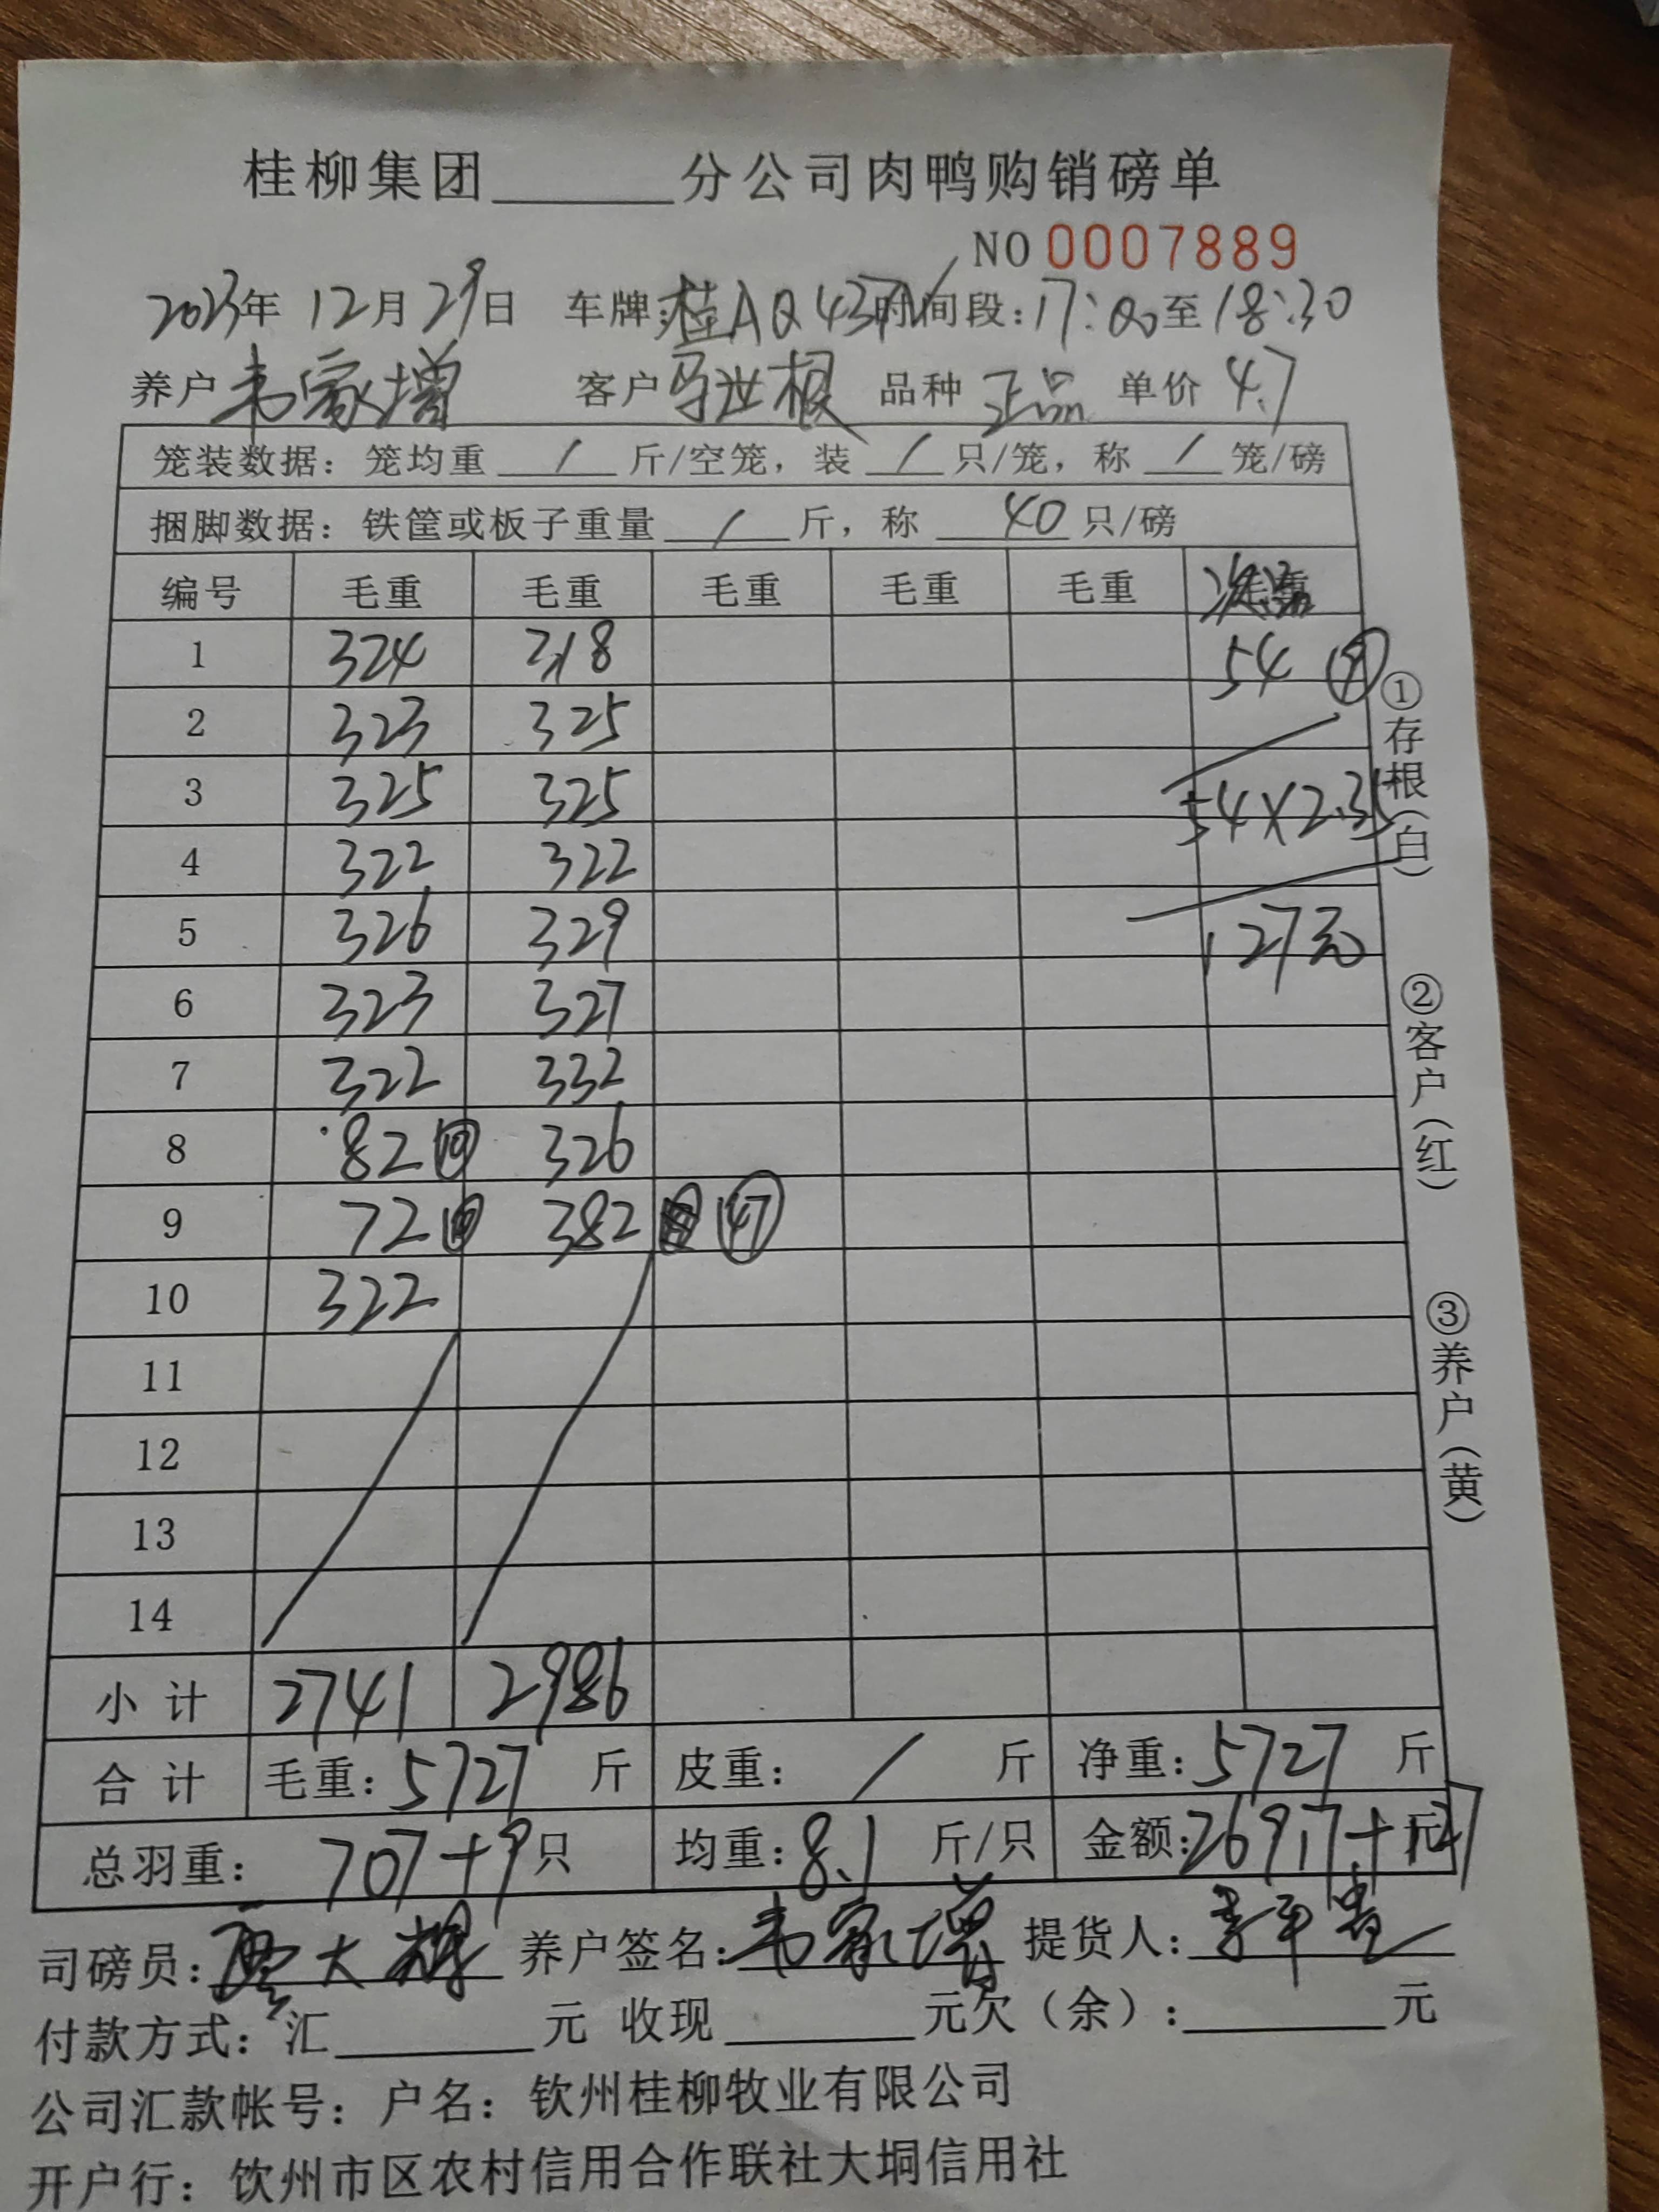 桂柳集团______分公司肉鸭购销磅单
NO 0007889
2023年 12月 29日 车牌:桂AQ437 时间段:17:00至18:30
养户 韦家增 客户 马世根 品种 正品 单价 4.7
笼装数据:笼均重 / 斤/空笼,装 / 只/笼,称 / 笼/磅
捆脚数据:铁筐或板子重量 / 斤,称 40 只/磅
编号 毛重 毛重 毛重 毛重 毛重
1 324 318 54 9
2 323 325
3 325 325 54×2.35
4 322 322
5 326 329 127元
6 323 327
7 322 332
8 82 10 326
9 72 382 47
10 322
11
12
13
14
小计 2741 2986
合计 毛重:5727 斤 皮重: / 斤 净重:5727 斤
总羽重: 707+9只 均重:8.1 斤/只 金额:26917+127元
司磅员: 大 养户签名:韦家增 提货人:
付款方式:汇______元 收现______元欠(余):______元
公司汇款帐号:户名:钦州桂柳牧业有限公司
开户行:钦州市区农村信用合作联社大垌信用社
①存根(白)
②客户(红)
③养户(黄)